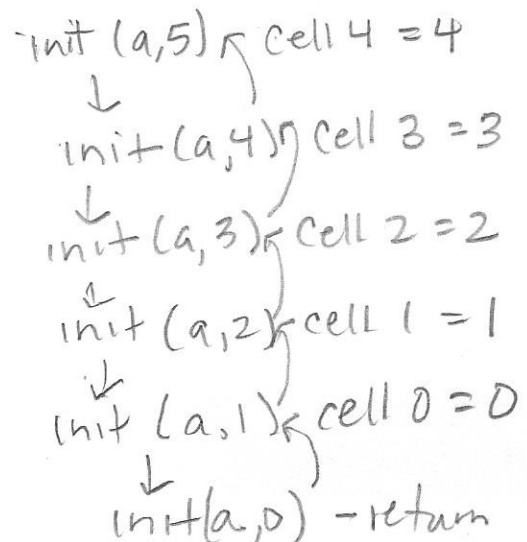 init (a,5) cell 4 = 4
init (a,4) cell 3 = 3
init (a,3) cell 2 = 2
init (a,2) cell 1 = 1
init (a,1) cell 0 = 0
init(a,0) - return